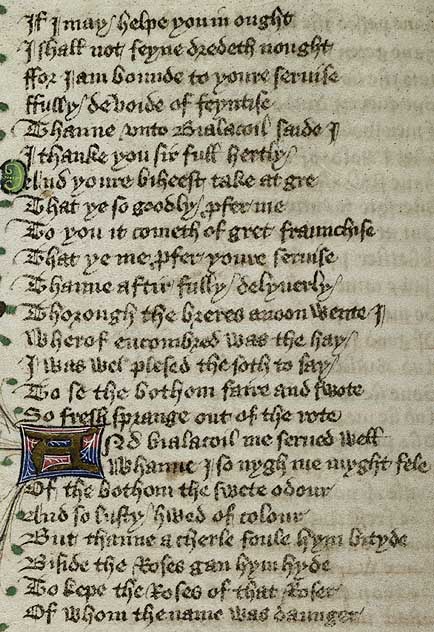 If I may helpe you in ought
I shall not feyne dredeth nought
ffor I am bounde to youre seruise
ffully devoide of feyntise
Thanne vnto Bialacoil saide I
I thanke you sir full hertly
And youre biheest take at gre
That ye so goodly ꝓfer me
To you it cometh of gret fraunchise
That ye me ꝓfer youre seruise
Thanne aftir fully delyuerly
Thorough the breres anoon wente I
Wherof encombred was the hay
I was wel plesed the soth to say
To se the bothom faire and swote
So fresh sprange out of the rote
And bialacoil me serued well
Whanne I so nygh me myght fele
Of the bothom the swete odour
And so lusty hwed of colour
But thanne a cherle foule hym bityde
Biside the Roses gan hym hyde
To kepe the Roses of that Roser
Of whom the name was daunger